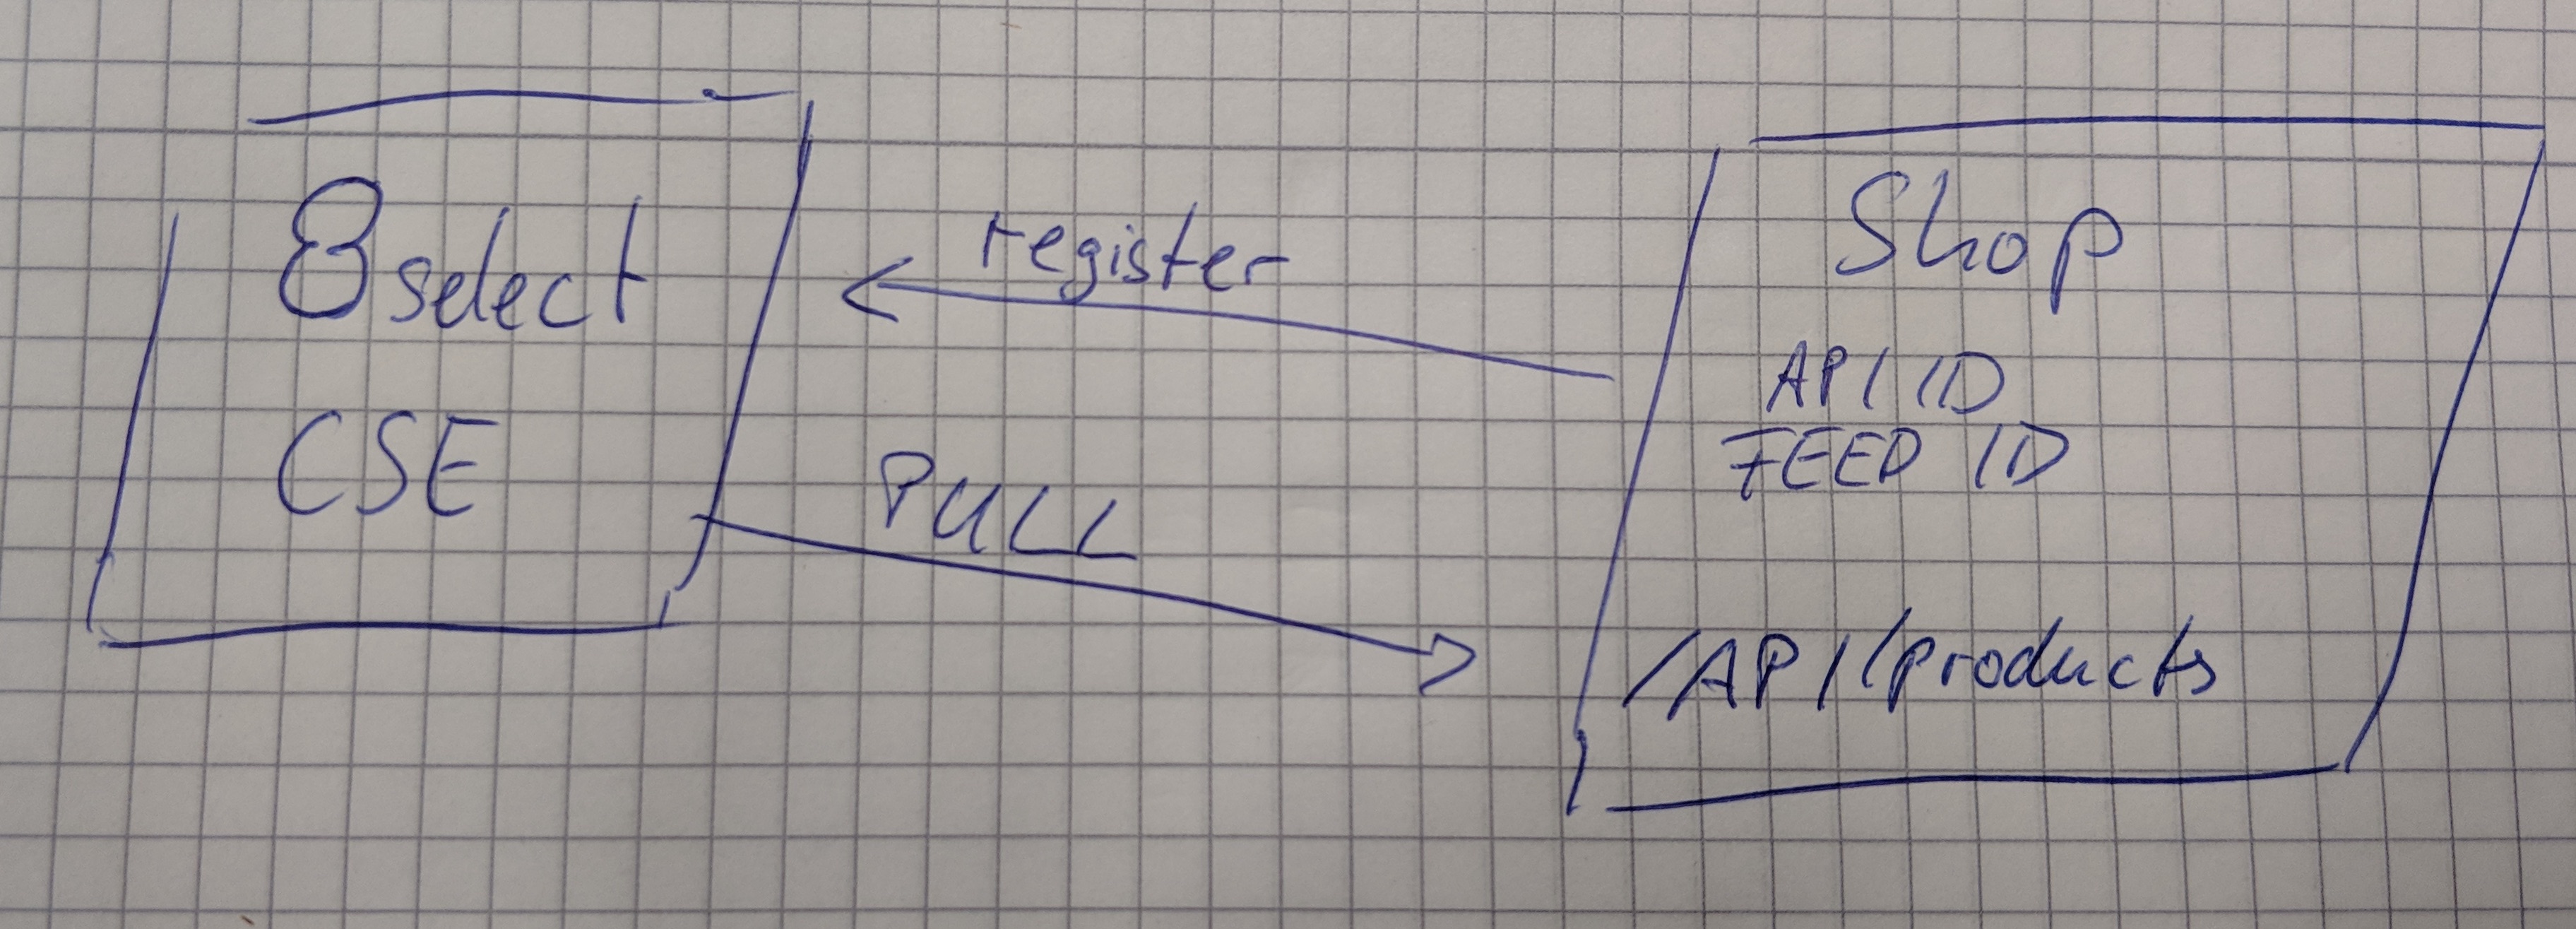 8select
CSE
register
PULL
Shop
API ID
FEED ID
/API/products